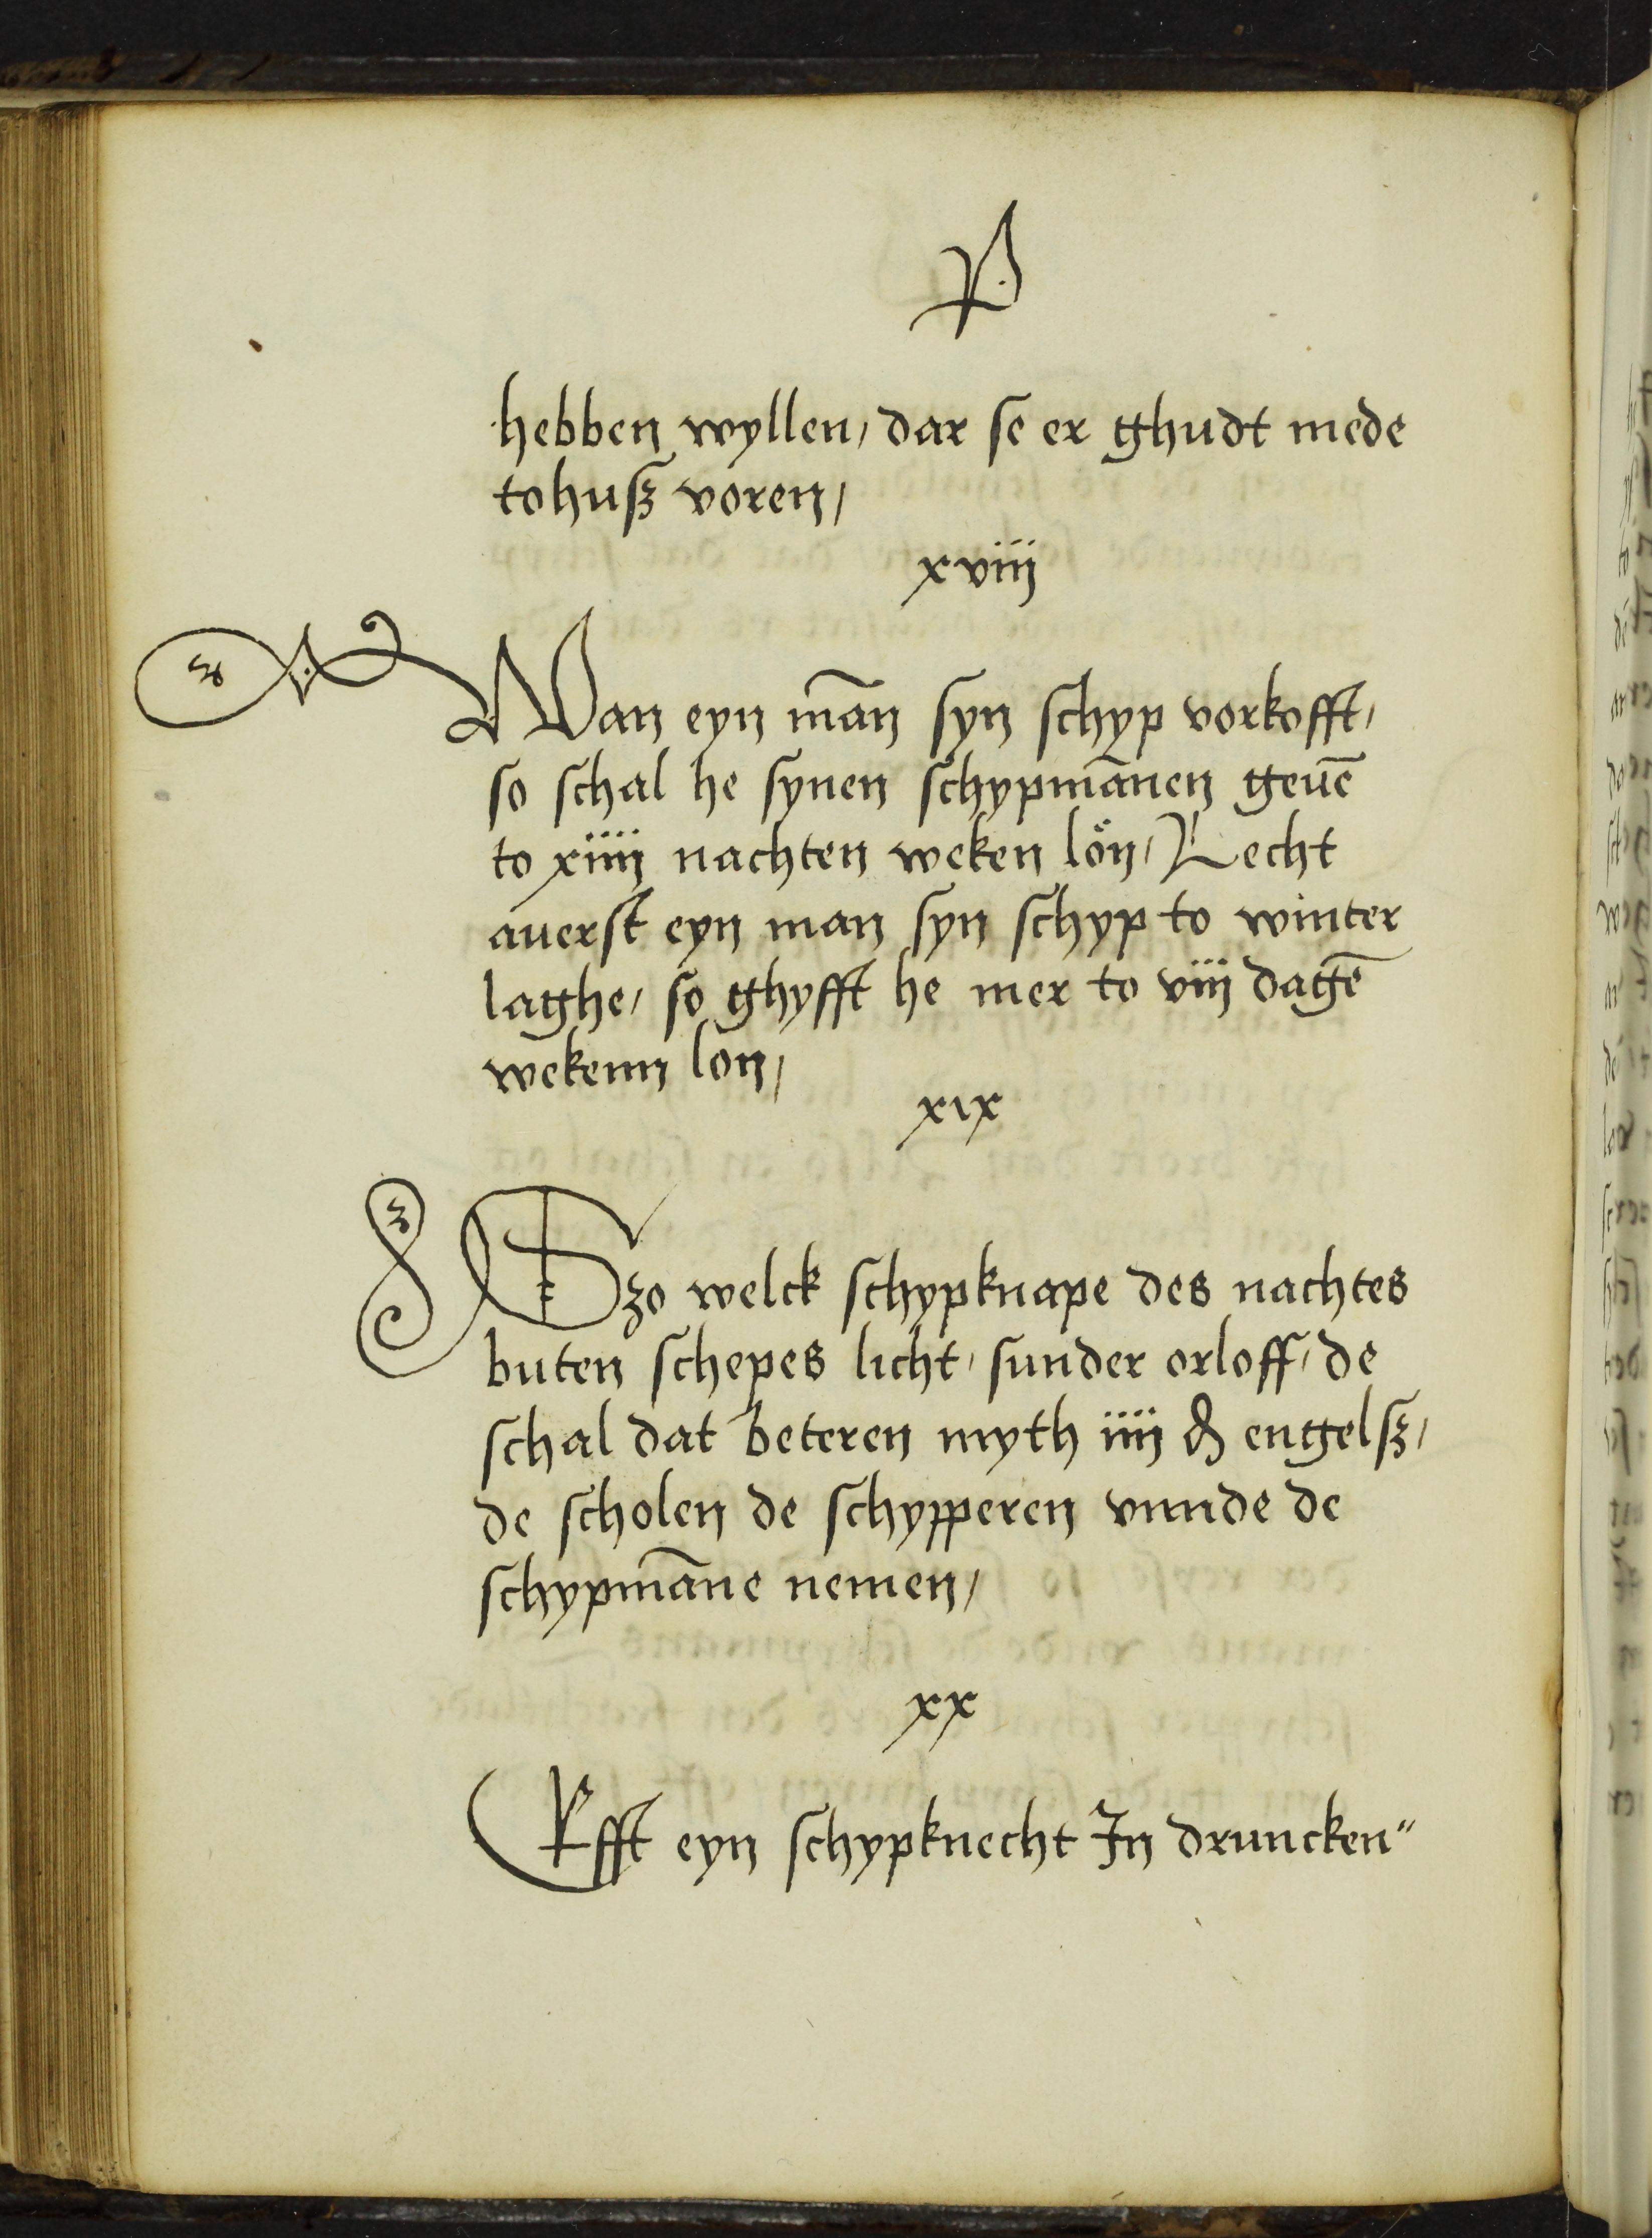 P
hebben wyllen, dar se er ghudt mede
tohusz voren,
xviij
Wan eyn mān syn schyp vorkofft,
so schal he synen schypmānen geuē
to xiiij nachten weken lön, Lecht
auerst eyn man syn schyp to winter
laghe, so ghyfft he mer to viij dagē
wekenn lon,
xix
Szo welck schypknape des nachtes
buten schepes licht, sunder orloff, de
schal dat beteren myth iiij ₰ engelsz,
de scholen de schypperen vnnde de
schypmāne nemen,
xx
Efft eyn schypknecht In druncken"